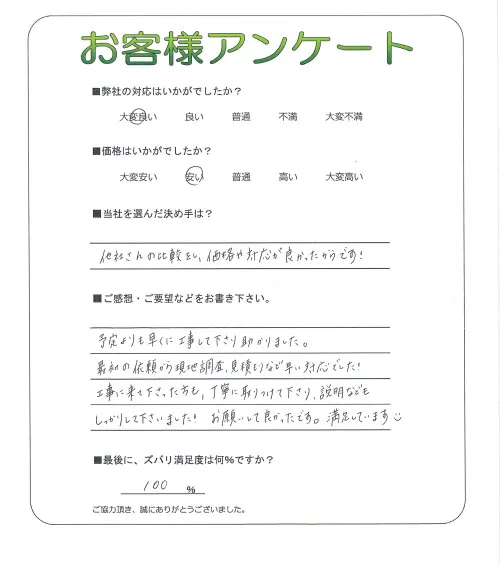 お客様アンケート
■弊社の対応はいかがでしたか？
大変良い 良い 普通 不満 大変不満
■価格はいかがでしたか？
大変安い 安い 普通 高い 大変高い
■当社を選んだ決め手は？
他社さんの比較をし、価格や対応が良かったからです!
■ご感想・ご要望などをお書き下さい。
予定よりも早くに工事して下さり助かりました。
最初の依頼から現地調査、見積もりなど早い対応でした!
工事に来て下さった方も、丁寧に取りつけて下さり、説明なども
しっかりして下さいました! お願いして良かったです。満足しています
■最後に、ズバリ満足度は何%ですか？
100 %
ご協力頂き、誠にありがとうございました。